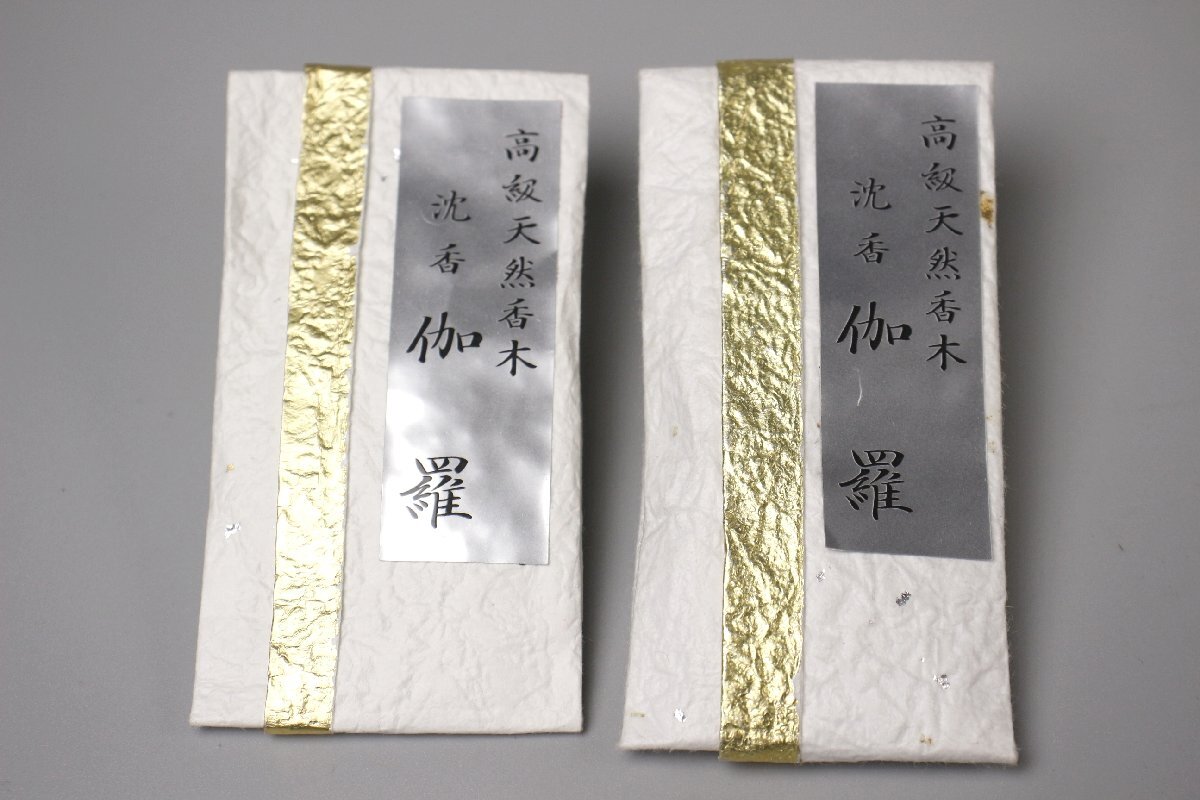 高級天然香木
沈香 伽羅
高級天然香木
沈香 伽羅